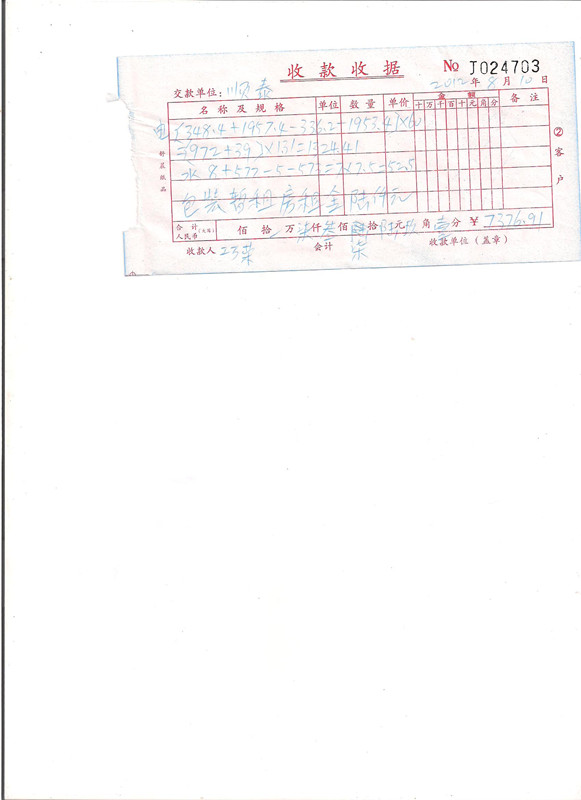 收款收据 № J024703
交款单位:顺泰 2012年8月10日
名称及规格 单位 数量 单价 金额 备注
十万千百十元角分
电(348.4+1957.4-336.2+1953.4)×60
=(972+39)×131=1324.41
水8+577-5-573=7×7.5=52.5
包装暂租房租金陆仟元
合计人民币(大写) 佰 拾 万柒仟叁佰柒拾陆元玖角壹分 ¥7376.91
收款人 会计 收款单位(盖章)
②客户